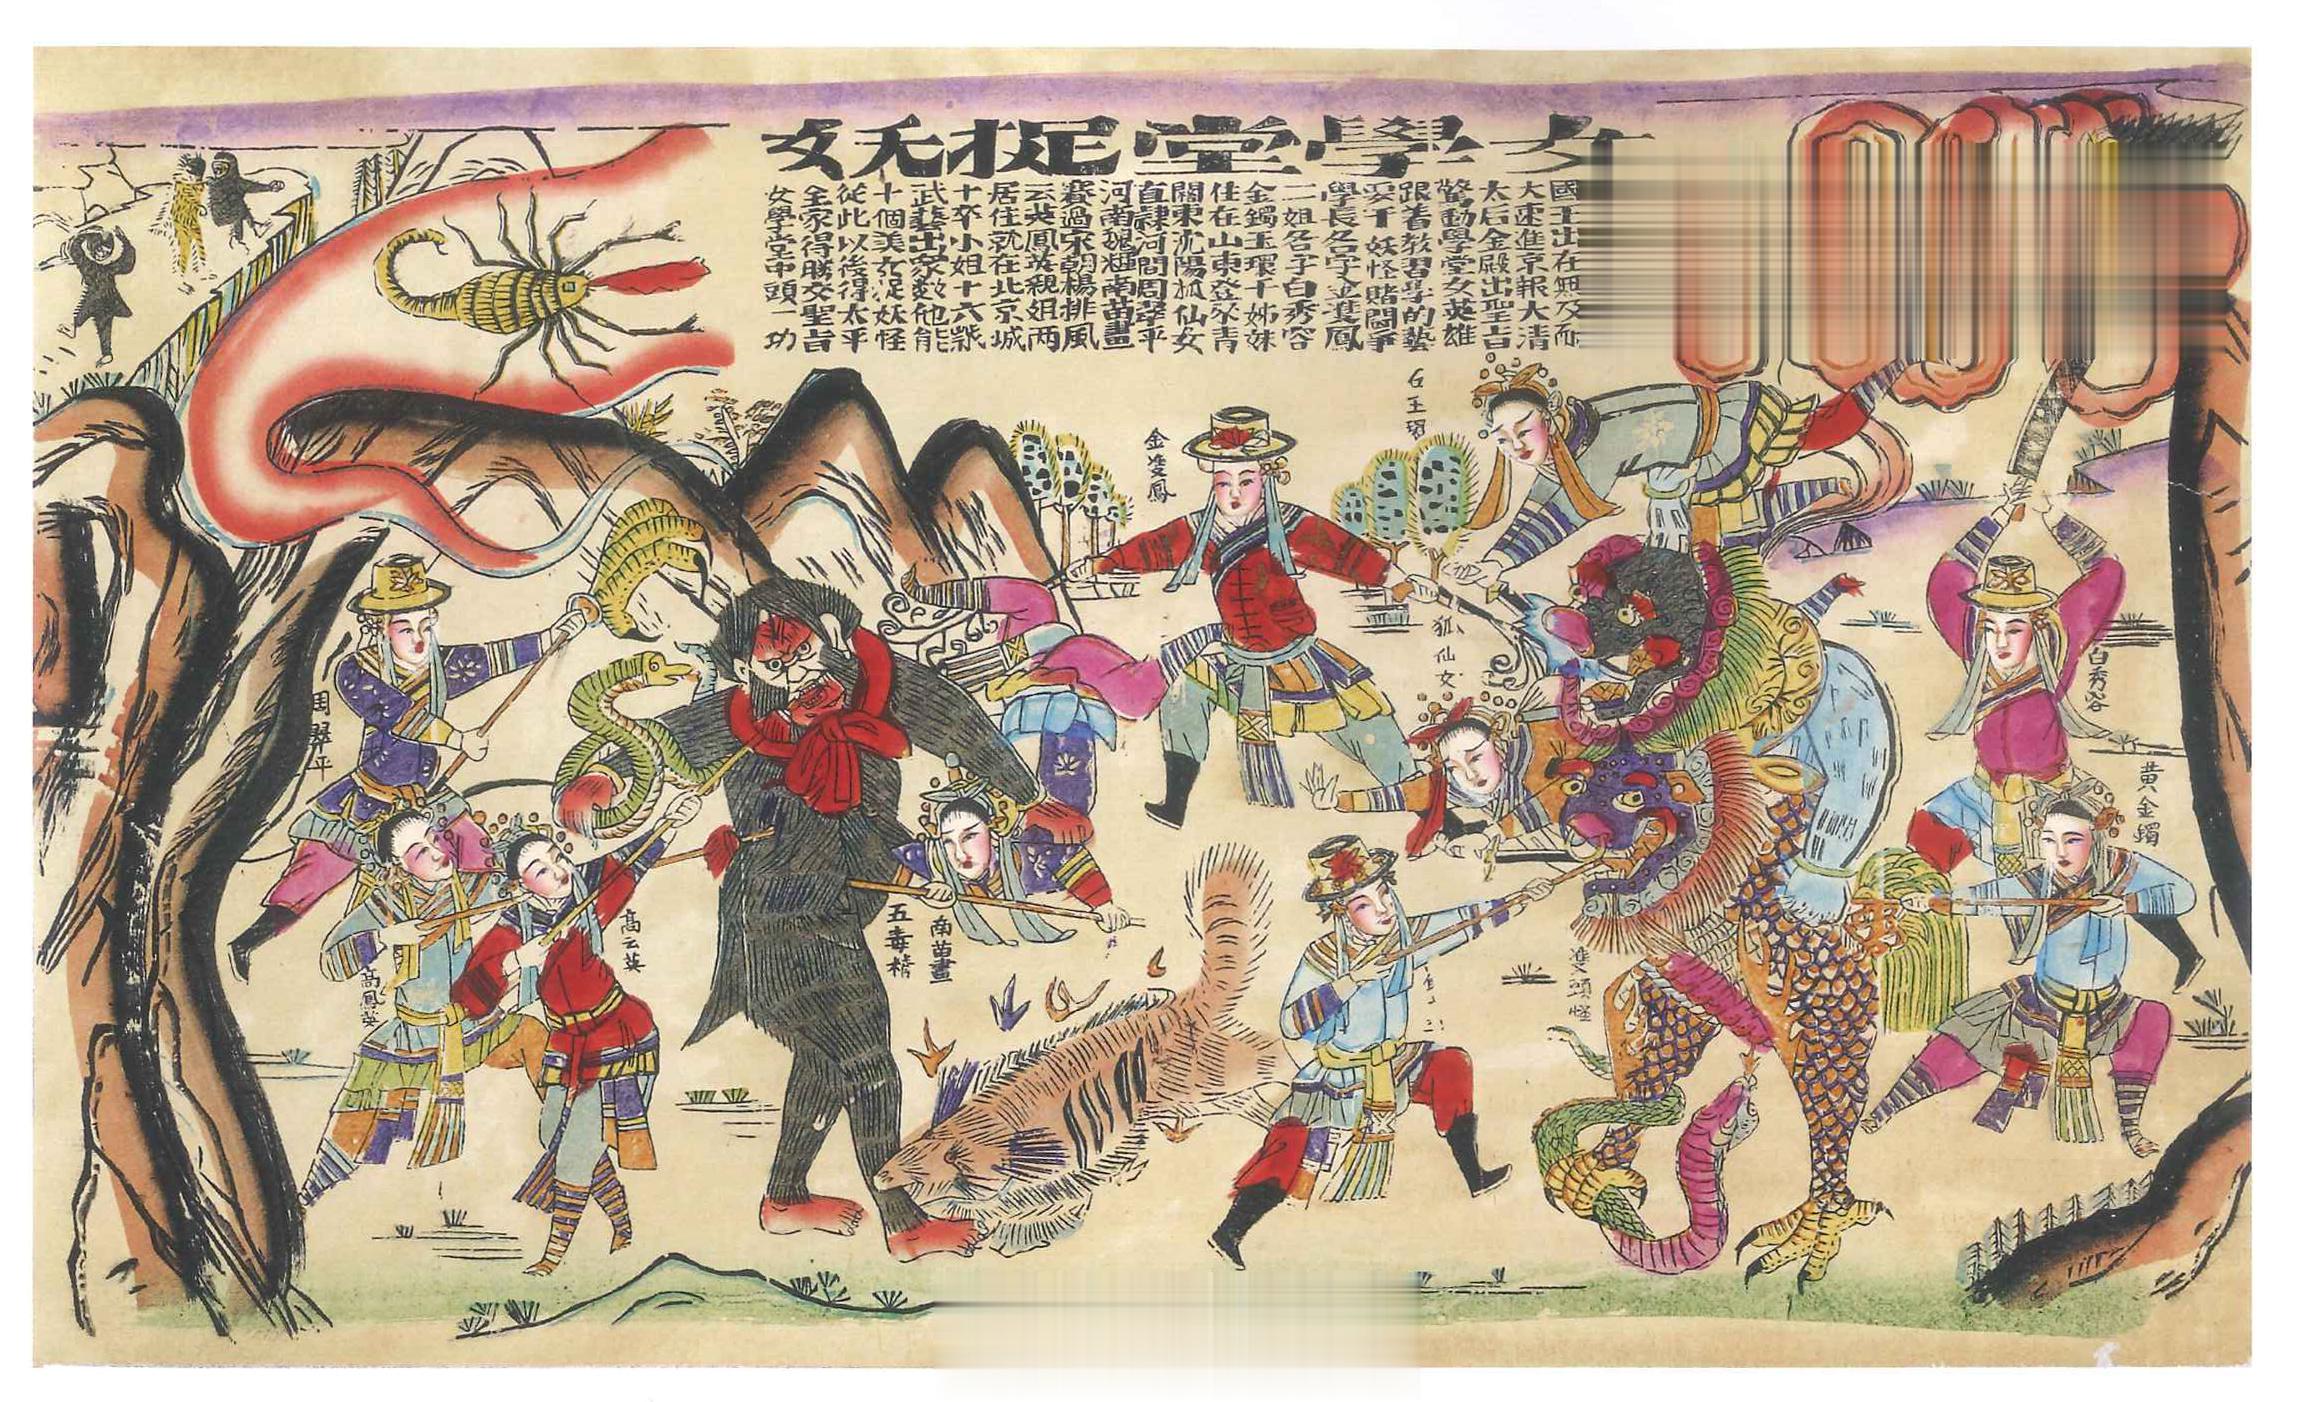 女學堂捉妖女
國王出在無及而
大速進京報大清
太后金殿出聖旨
驚動學堂女英雄
跟着教習學的藝
妥干妖怪賭鬪爭
學長名字金雙鳳
二姐名字白秀容
金鐲玉環干姊妹
住在山東登萊青
關東沈陽狐仙女
直隸河間周翠平
河南魏輝南苗畫
賽過宋朝楊排風
云英鳳英親姐两
居住就在北京城
十卒小姐十六歲
武藝出衆数他能
十個美女捉妖怪
從此以後得太平
全家得勝女聖旨
女學堂中頭一功
石玉環
金雙鳳
狐仙女
白秀谷
黄金鐲
周翠平
高云英
高鳳英
南苗畫
五毒精
雙頭怪